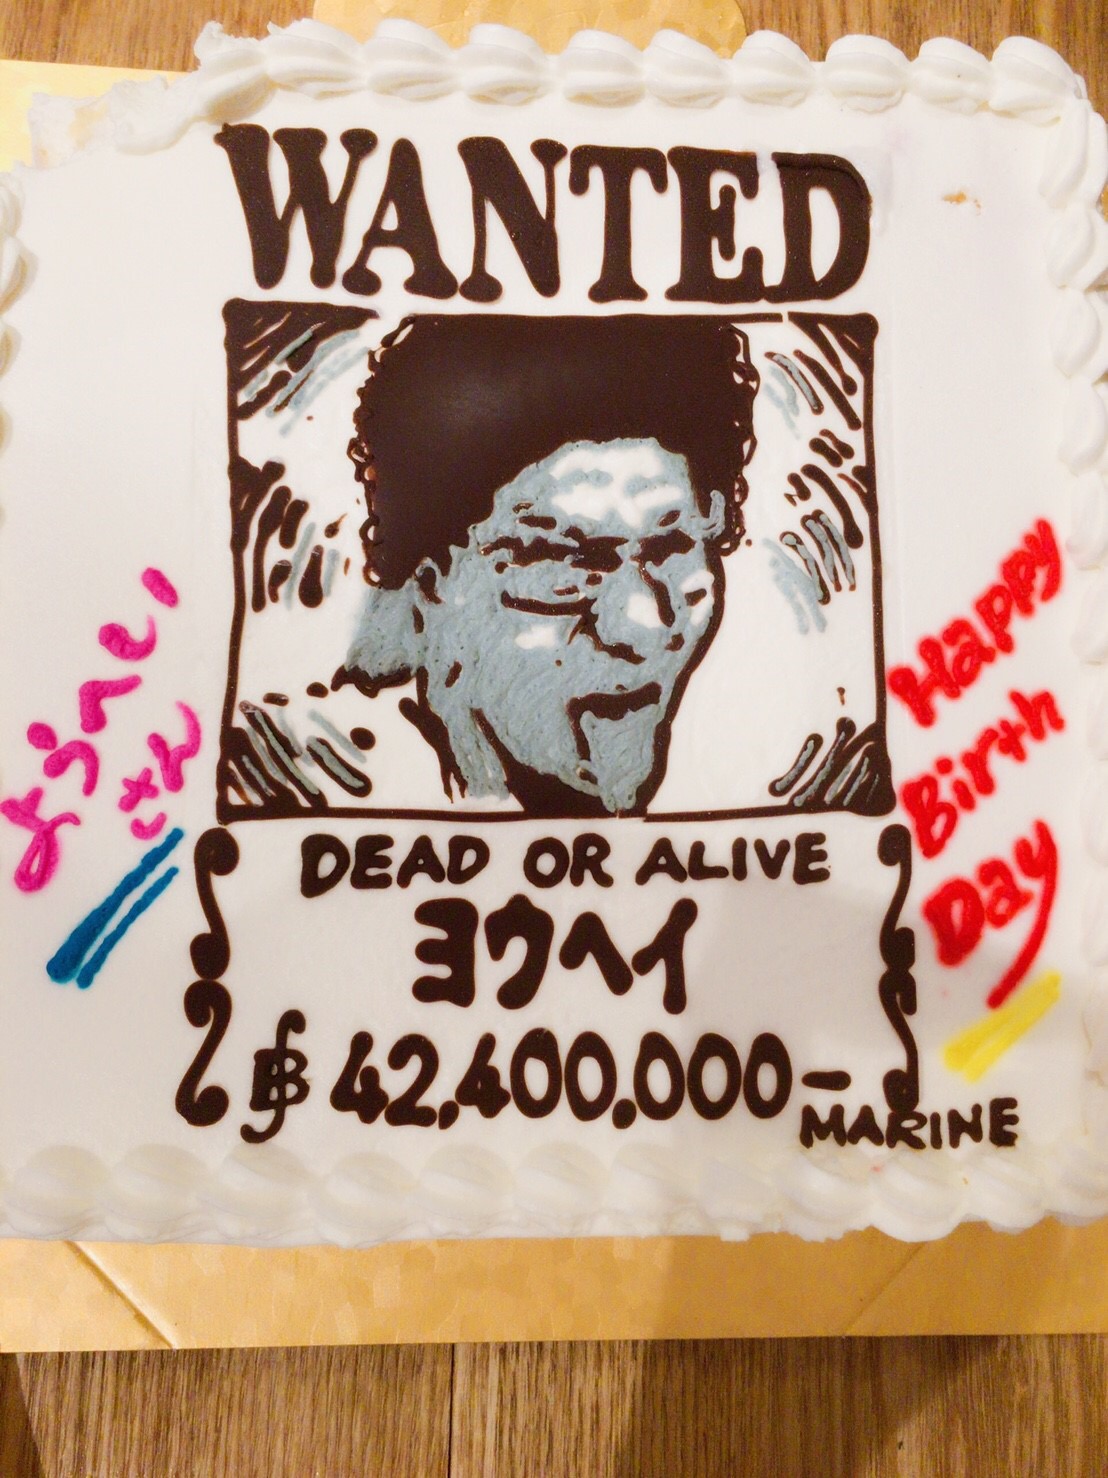 WANTED
DEAD OR ALIVE
ヨウヘイ
฿ 42,400,000-
MARINE
ようへい
さん
Happy
Birth
Day